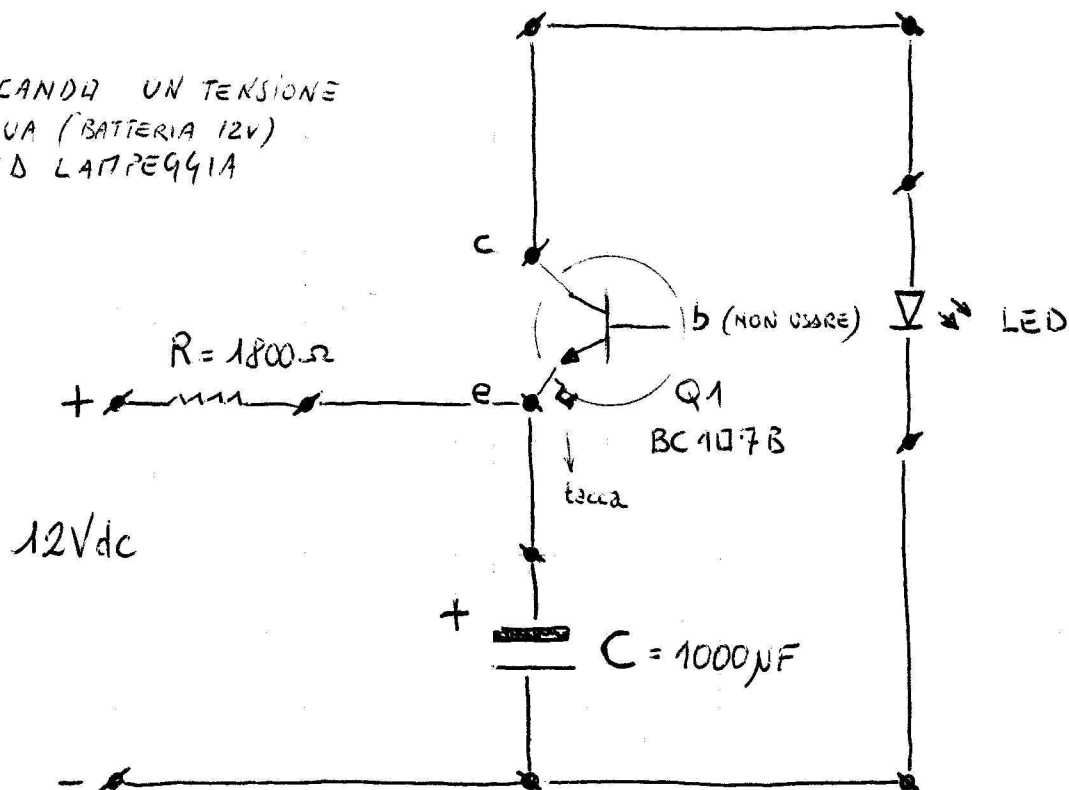 UN TENSIONE
(BATTERIA 12V)
LAMPEGGIA
c
b (NON USARE)
LED
R = 1800 Ω
+
e
Q1
BC107B
tacca
12Vdc
+
C = 1000µF
-